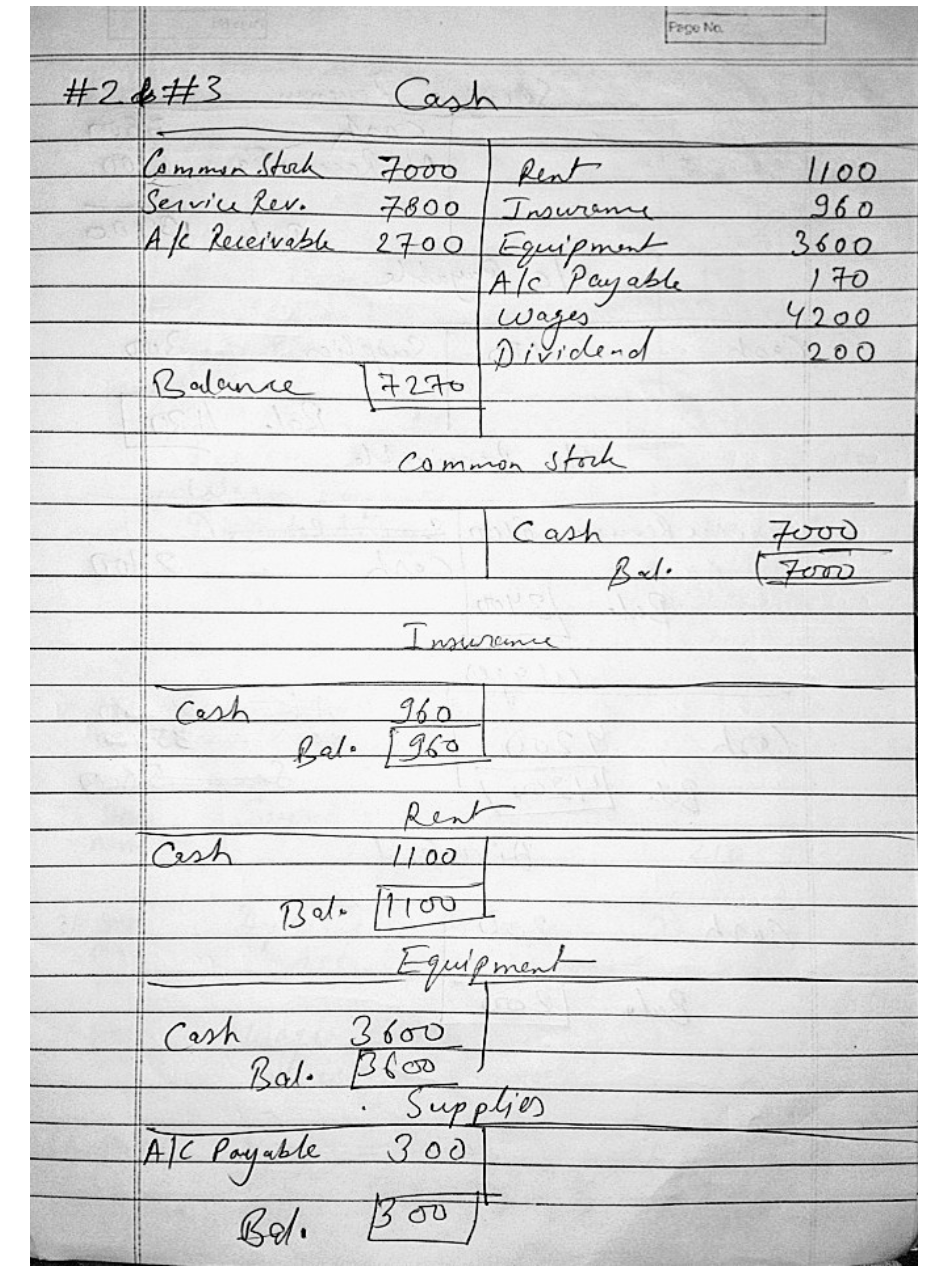 Page No.
#2 & #3 Cash
Common Stock 7000 Rent 1100
Service Rev. 7800 Insurance 960
A/c Receivable 2700 Equipment 3600
A/c Payable 170
Wages 4200
Dividend 200
Balance 7270
Common Stock
Cash 7000
Bal. 7000
Insurance
Cash 960
Bal. 960
Rent
Cash 1100
Bal. 1100
Equipment
Cash 3600
Bal. 3600
Supplies
A/C Payable 300
Bal. 300